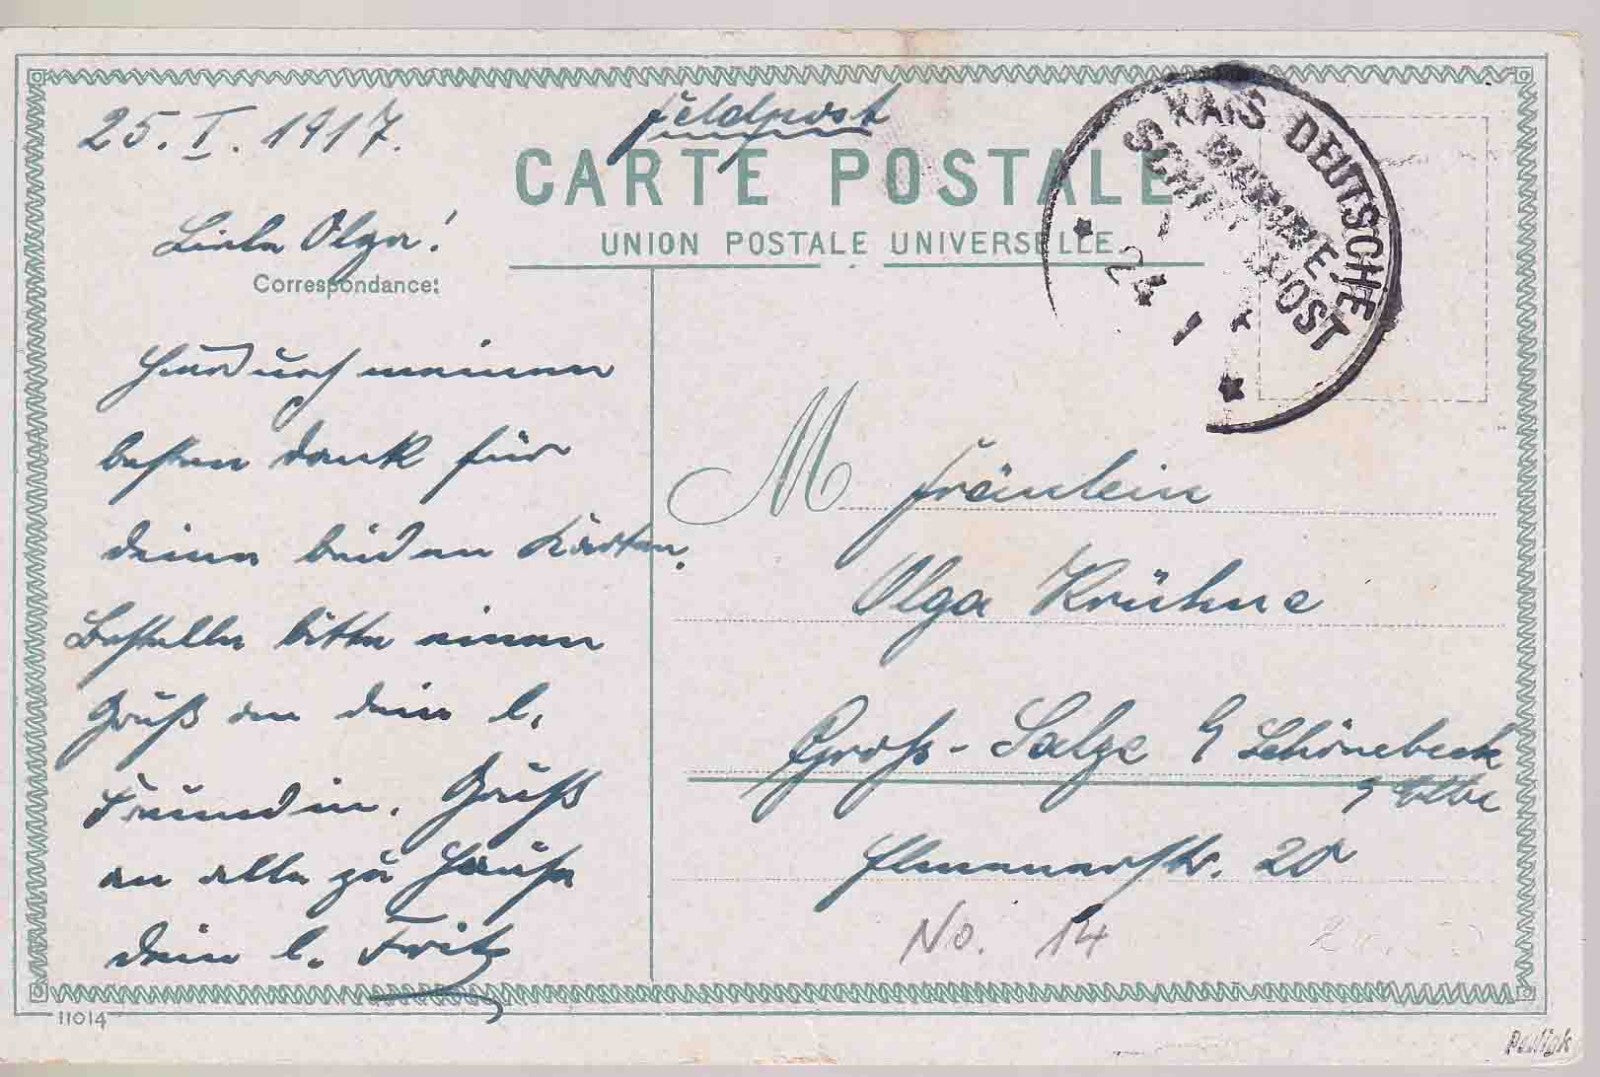 25. I. 1917.
Feldpost
CARTE POSTALE
UNION POSTALE UNIVERSELLE.
KAIS. DEUTSCHE
MARINE-
SCHIFFSPOST
24 1
Liebe Olga!
Correspondance:
meinen
besten Dank für
deine beiden Karten.
Bestelle bitte einen
Gruß an dein l.
Freundin. Gruß
an alle zu Hause
dein l. Fritz
M
Fräulein
Olga Krühne
Groß-Salze b/ Schönebeck
a/ Elbe
20
No. 14
11014